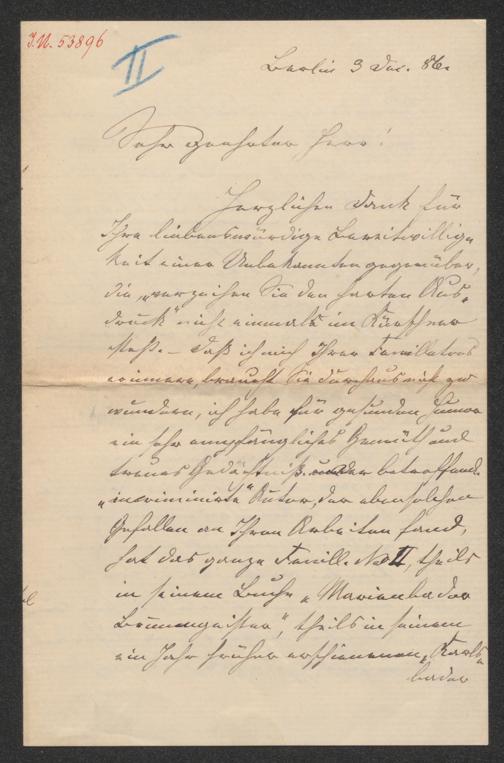 J.N. 53896
II
Berlin 3 Dec. 86.
Sehr geehrter Herr!
Herzlichen Dank für
Ihre liebenswürdige Bereitwillig
keit einer Unbekannten gegenüber,
die „verzeihen Sie den harten Aus-
druck" nicht einmal im Kürschner
steht. – Daß ich mich Ihres Feuilletons
erinnere, braucht Sie durchaus nicht zu
wundern, ich habe für gesunden Humor
ein sehr empfängliches Gemüt und
treues Gedächtniß. der betreffende
„incriminirte" Autor, der ebensolchen
Gefallen an Ihren Arbeiten fand,
hat das ganze Feuill. No II, theils
in seinem Buche „Marienbader
Brunnengeister", theils in seinem
ein Jahr früher erschienenen „Karls-
bader